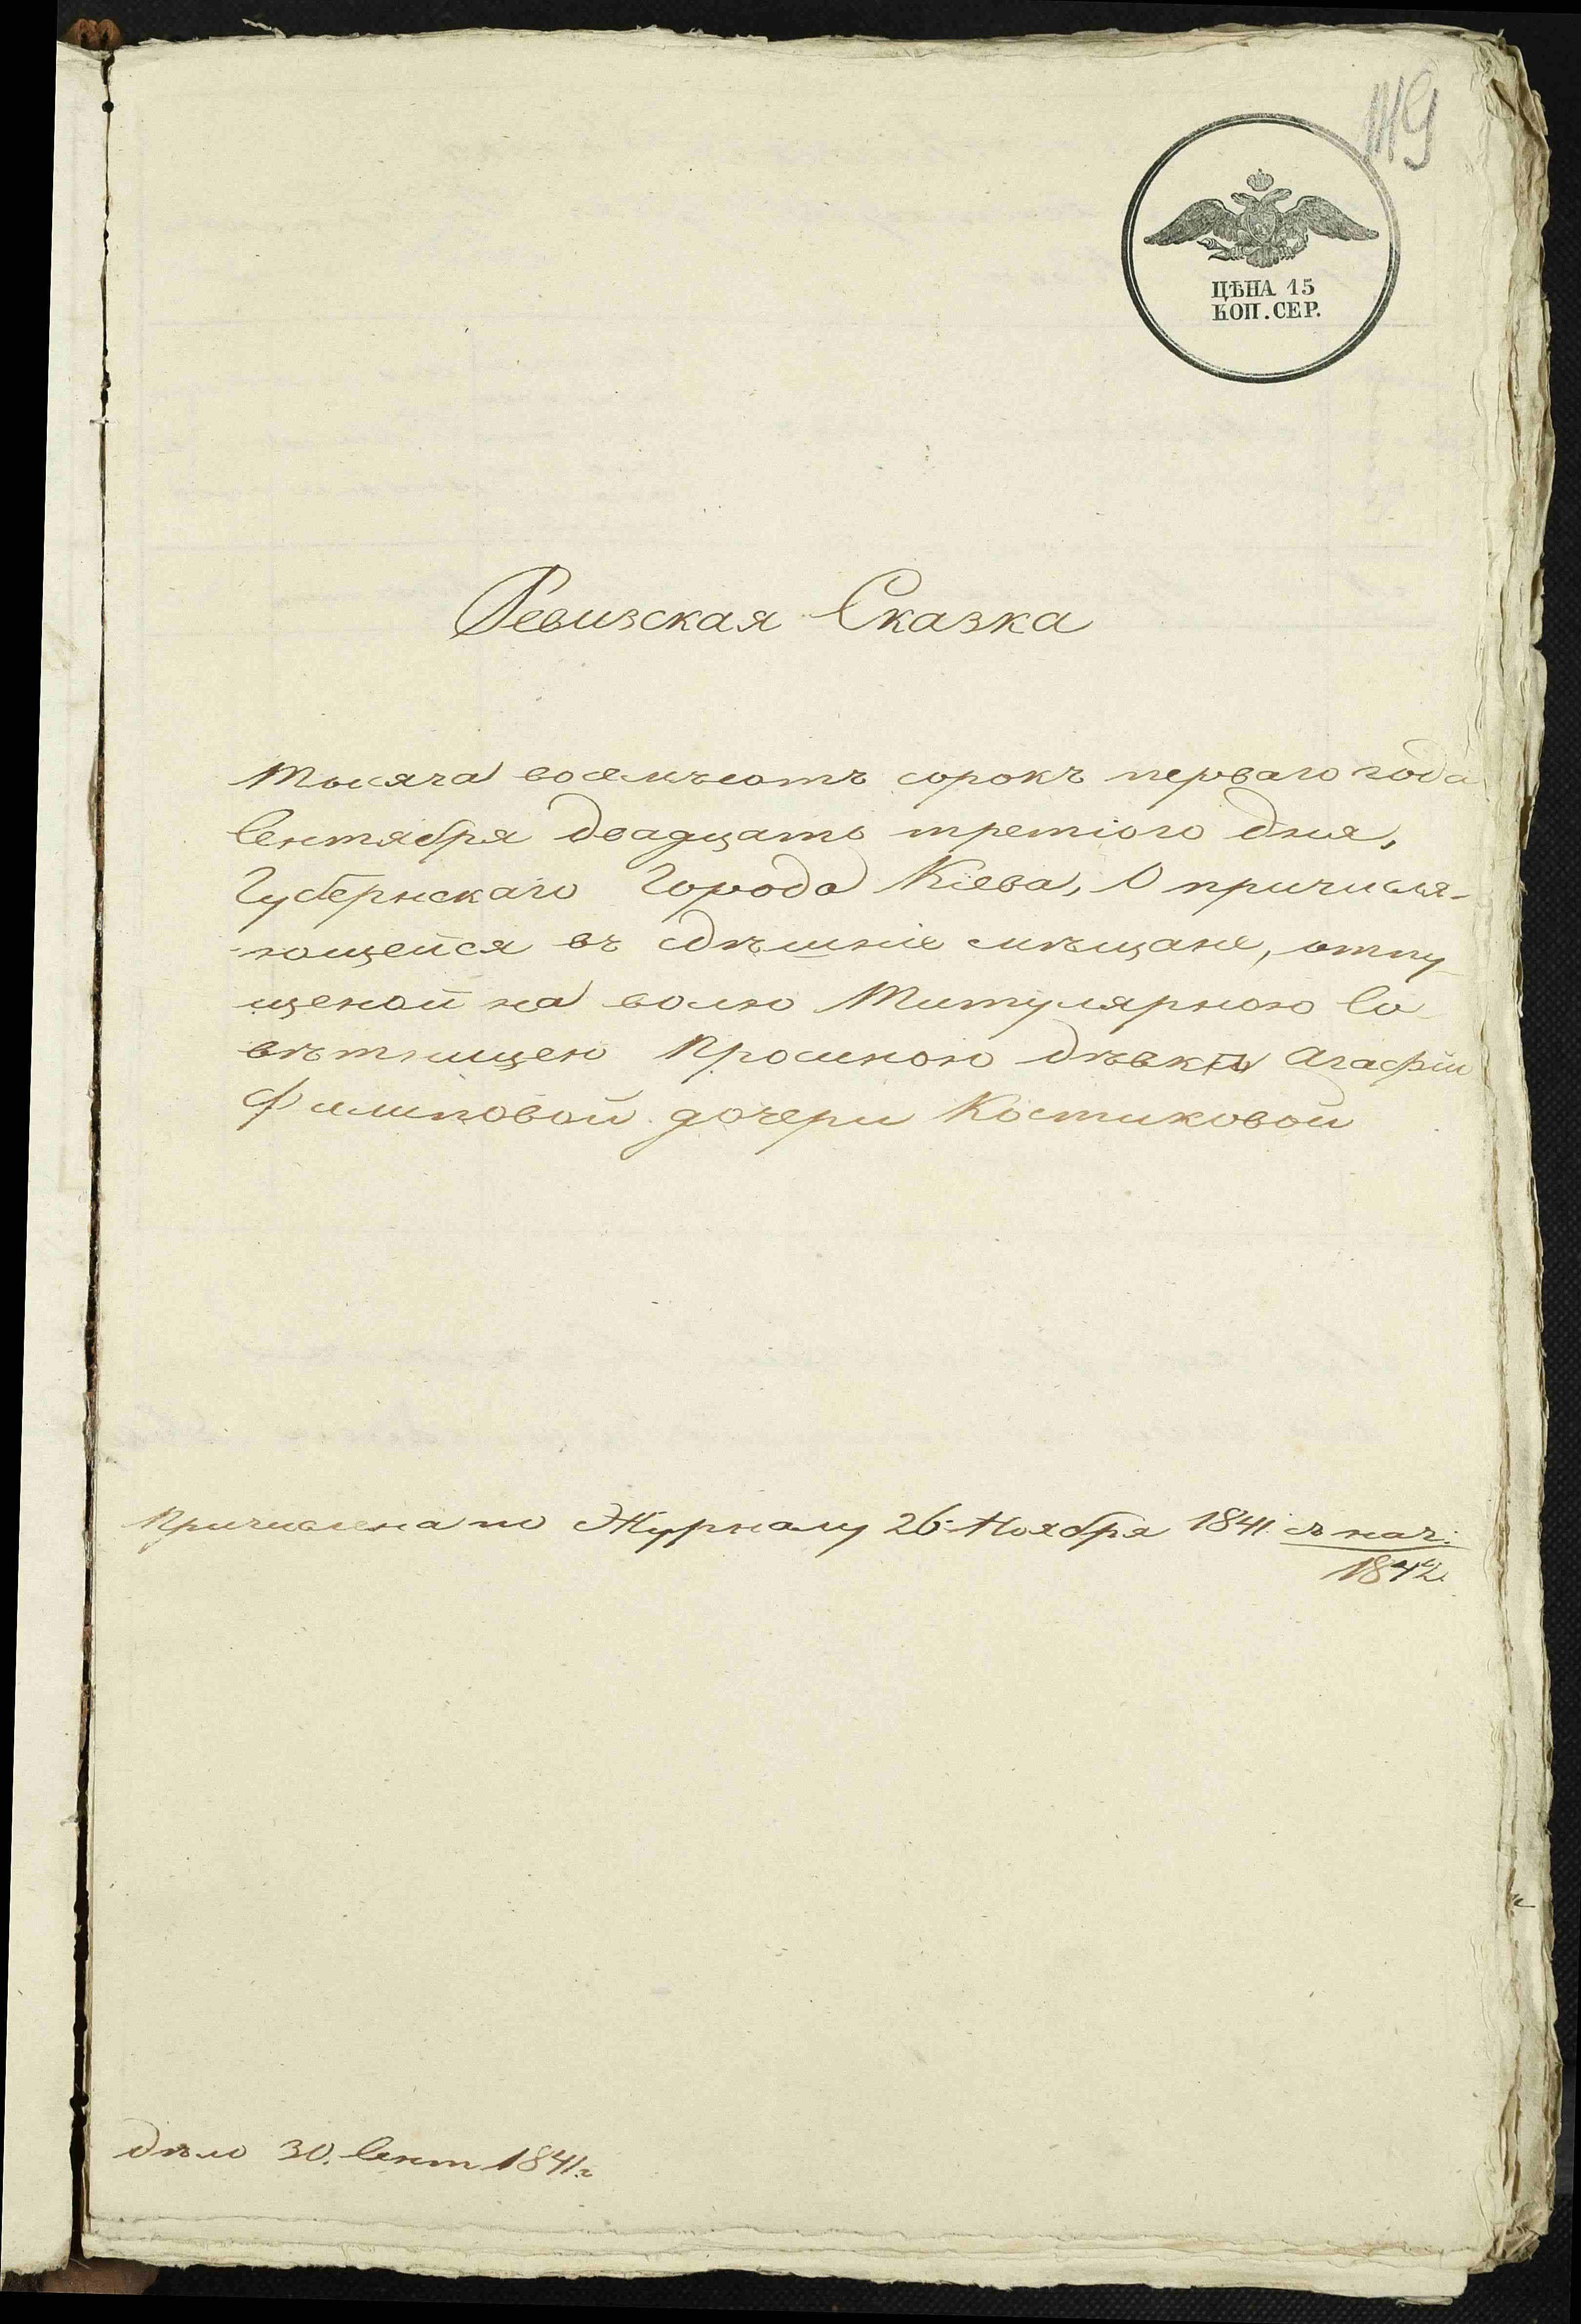 ЦѢНА 15
КОП. СЕР.
Ревизская Сказка
Тысяча восемьсотъ сорокъ перваго года
Сентября двадцать третіого дня,
Губернскаго Города Кіева, О причисля-
ющейся въ сдѣшніе мѣщане, отпу
щеной на волю Титулярною Со
вѣтницею дѣвки Агафіи
Филиповой дочери Костиковой
Причислена по Журналу 26 Ноября 1841 съ нач:
1842
дѣло 30. Сент 1841 г